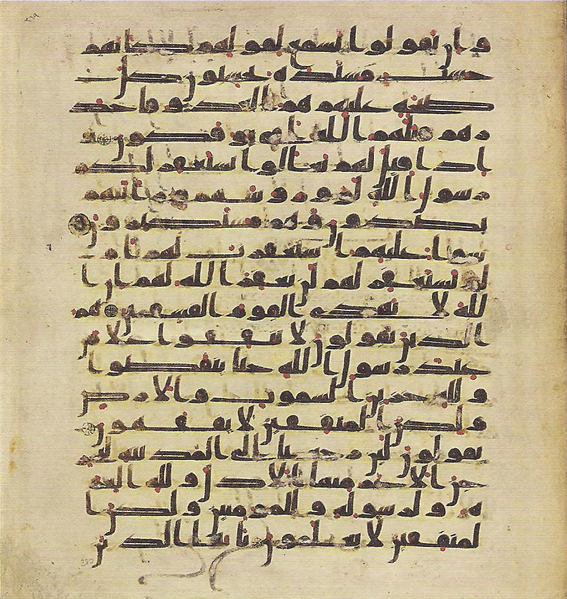 و ان يقولوا تسمع لقولهم كانهم
خشب مسندة يحسبون كل
صيحة عليهم هم العدو فاحذر
هم قتلهم الله انى يوفكون و
اذا قيل لهم تعالوا يستغفر لكم
رسول الله لووا روسهم و رايتهم
يصدون و هم مستكبرون
سوا عليهم استغفرت لهم ام
لم تستغفر لهم لن يغفر الله لهم ان ا
لله لا يهدى القوم الفسقين هم
الذين يقولون لا تنفقوا على من
عند رسول الله حتى ينفضوا
و لله خزين السموت و الارض
و لكن المنفقين لا يفقهون
يقولون لين رجعنا الى المدينة ليخر
جن الاعز منها الاذل و لله العز
ة و لرسوله و للمومنين و لكن ا
لمنفقين لا يعلمون يايها الذين